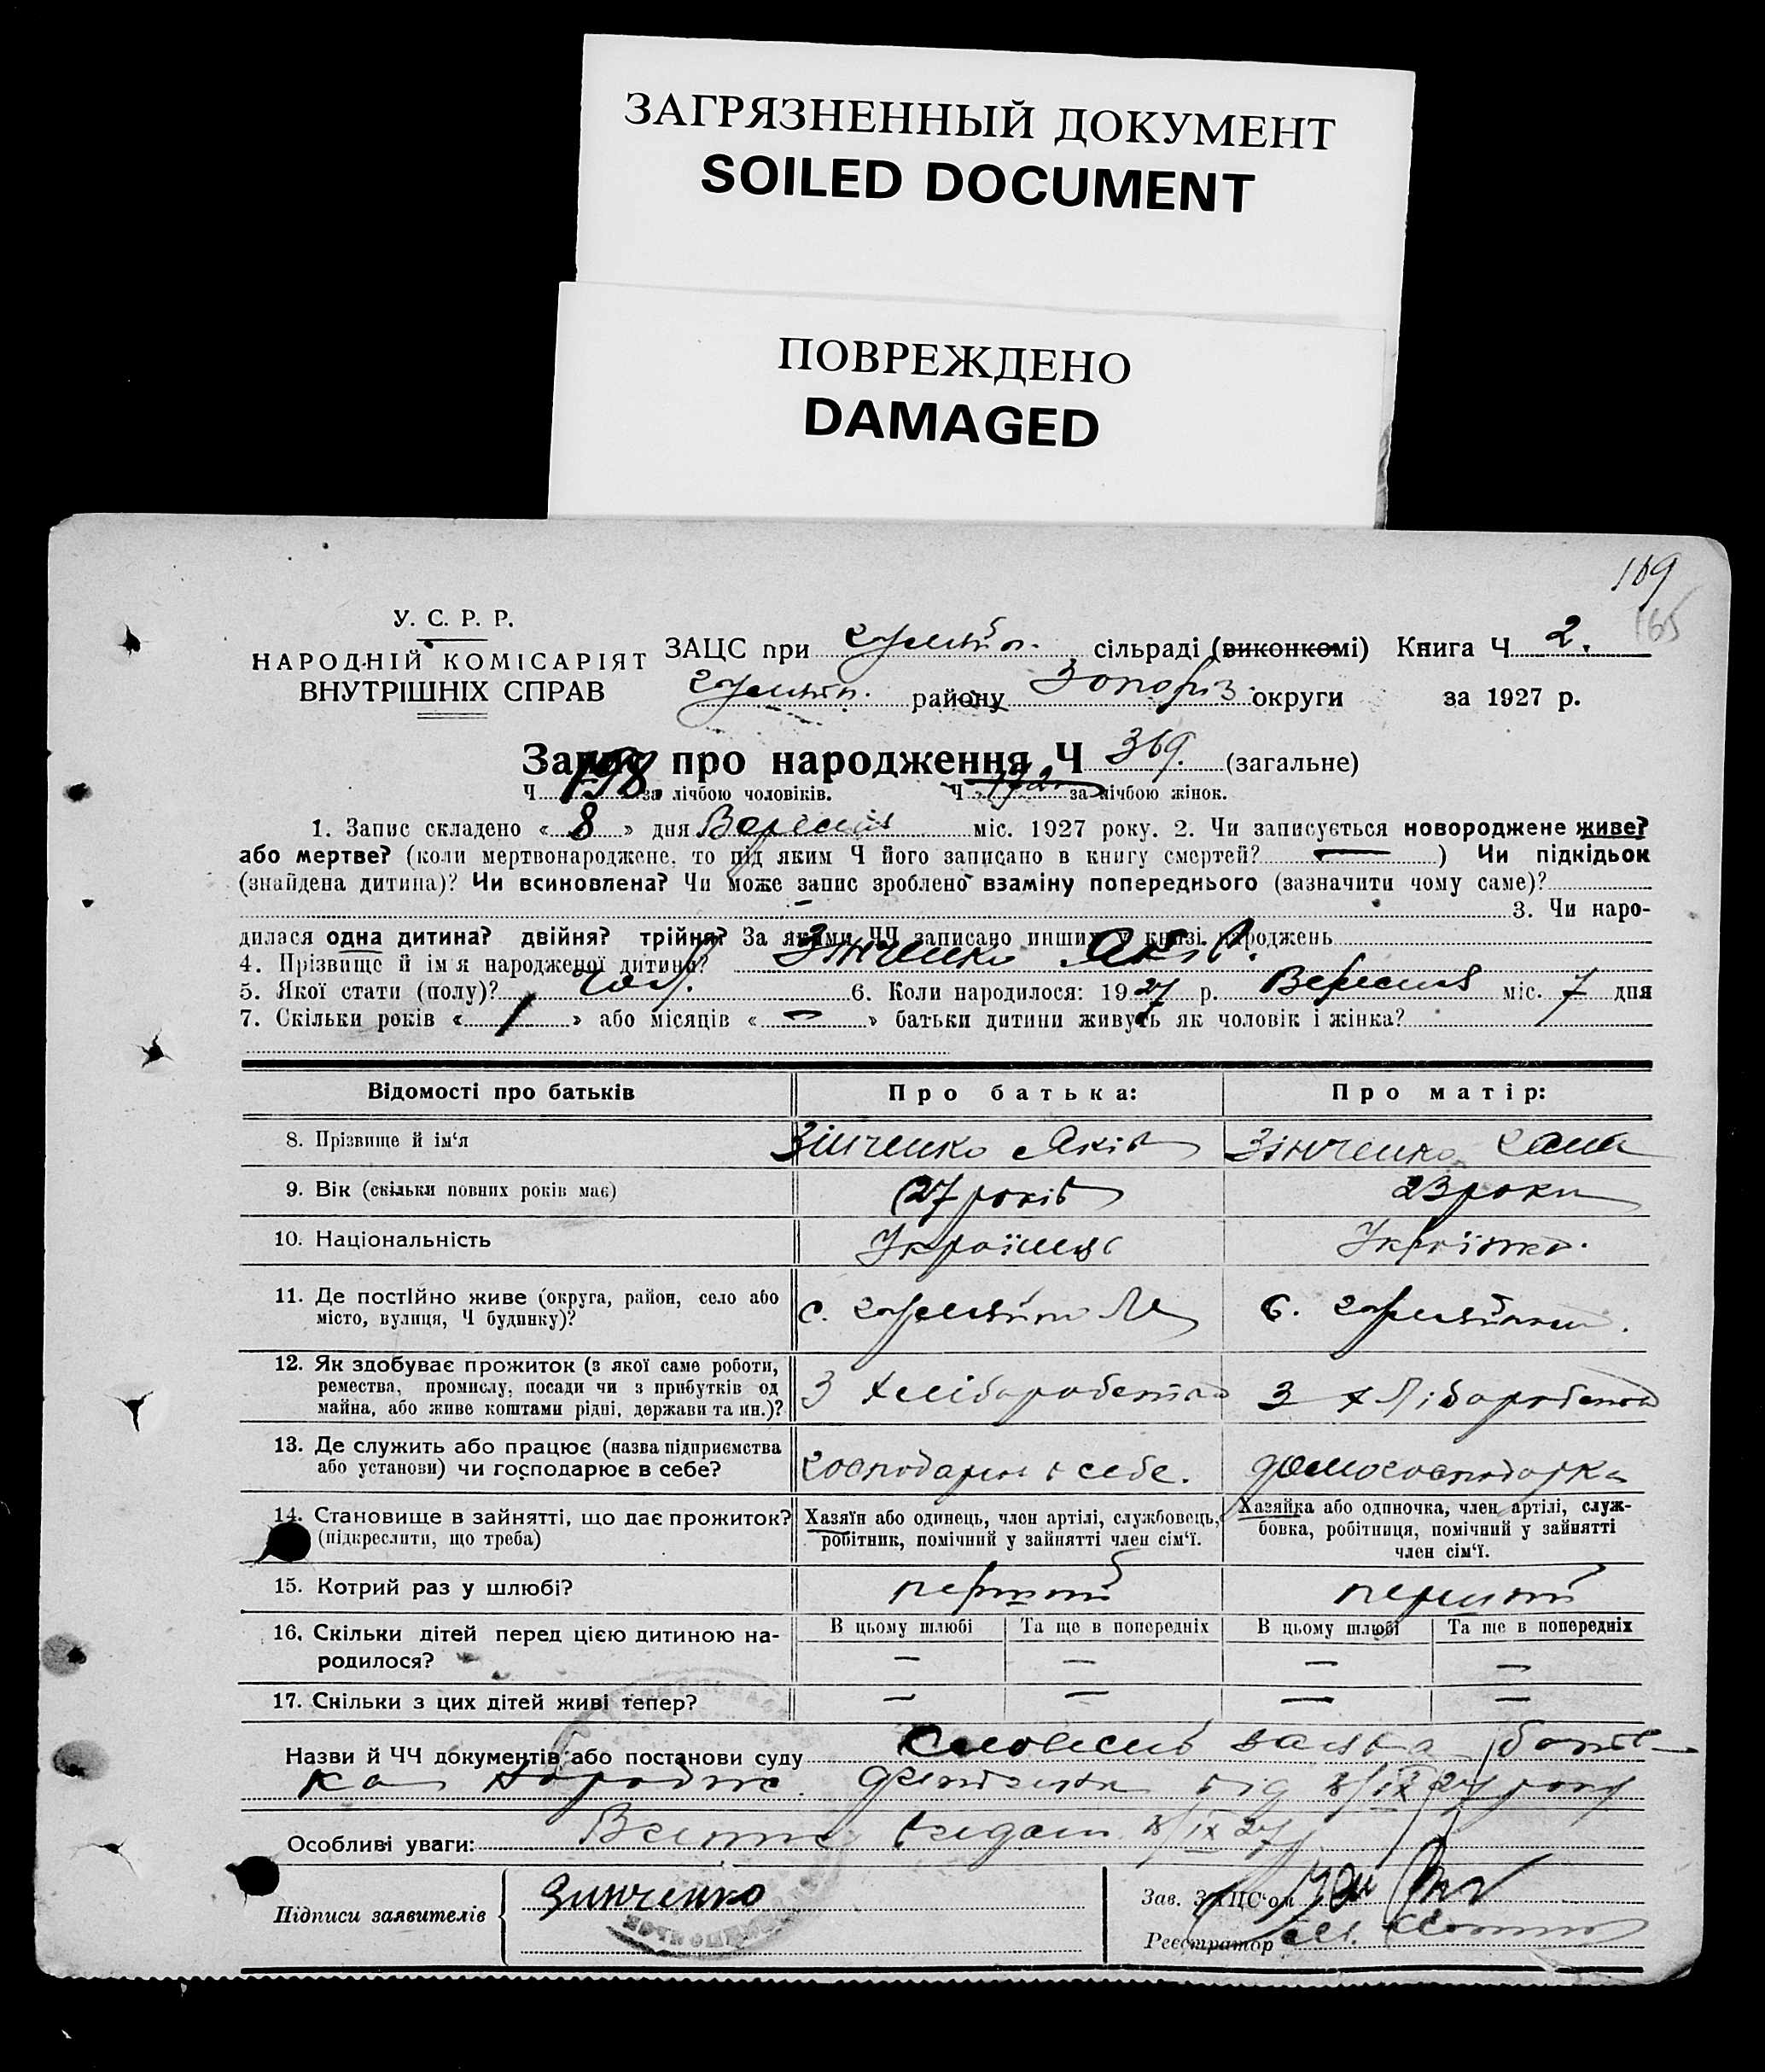 ЗАГРЯЗНЕННЫЙ ДОКУМЕНТ
SOILED DOCUMENT
ПОВРЕЖДЕНО
DAMAGED
169
165
У. С. Р. Р.
НАРОДНІЙ КОМІСАРІЯТ
ВНУТРІШНІХ СПРАВ
ЗАЦС при сільраді (виконкомі) Книга Ч 2.
району Запоріз. округи за 1927 р.
Запис про народження Ч 369. (загальне)
Ч 198 за лічбою чоловіків. Ч 172 за лічбою жінок.
1. Запис складено « 8 » дня Вересня міс. 1927 року. 2. Чи записується новороджене живе?
або мертве? (коли мертвонароджене, то під яким Ч його записано в книгу смертей? — ) Чи підкідьок
(знайдена дитина)? Чи всиновлена? Чи може запис зроблено взаміну попереднього (зазначити чому саме)?
3. Чи наро-
дилася одна дитина? двійня? трійня? За якими ЧЧ записано инших у книзі народжень
4. Прізвище й ім'я народженої дитини? Зінченко Яків.
5. Якої стати (полу)? чол. 6. Коли народилося: 1927 р. Вересня міс. 7 дня
7. Скільки років « 1 » або місяців « — » батьки дитини живуть як чоловік і жінка?
Відомості про батьків Про батька: Про матір:
8. Прізвище й ім'я Зінченко Яків Зінченко
9. Вік (скільки повних років має) 27 років 23 роки
10. Національність Українець Українка.
11. Де постійно живе (округа, район, село або
місто, вулиця, Ч будинку)? с. с.
12. Як здобуває прожиток (з якої саме роботи,
ремества, промислу, посади чи з прибутків од
майна, або живе коштами рідні, держави та ин.)? З хліборобства З хліборобства
13. Де служить або працює (назва підприємства
або установи) чи господарює в себе? господарює в себе. домогосподарка
14. Становище в зайнятті, що дає прожиток?
(підкреслити, що треба)
Хазяїн або одинець, член артілі, службовець,
робітник, помічний у зайнятті член сім'ї.
Хазяйка або одиночка, член артілі, служ-
бовка, робітниця, помічний у зайнятті
член сім'ї.
15. Котрий раз у шлюбі? перший перший
16. Скільки дітей перед цією дитиною на-
родилося?
В цьому шлюбі Та ще в попередніх В цьому шлюбі Та ще в попередніх
— — — —
17. Скільки з цих дітей живі тепер? — — — —
Назви й ЧЧ документів або постанови суду Словесна заява батьк-
ка від 8/IX 27 року
Особливі уваги: 8/IX 27
Підписи заявителів Зинченко
Зав. ЗАЦС'ом
Реєстратор